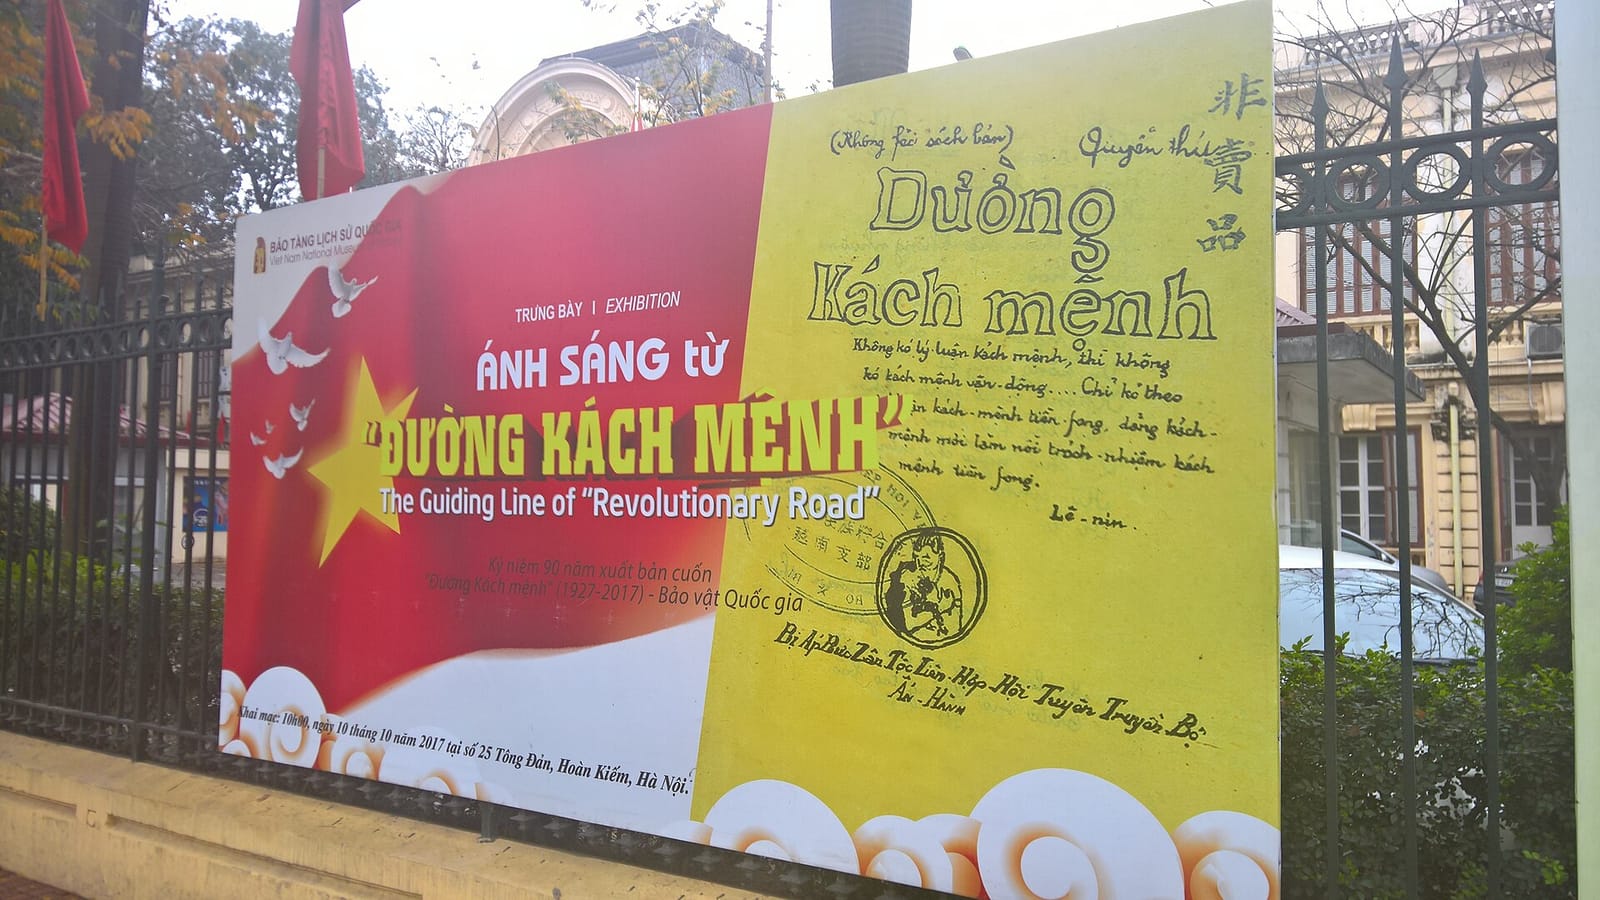 BẢO TÀNG LỊCH SỬ QUỐC GIA
Viet Nam National Museum
TRƯNG BÀY | EXHIBITION
ÁNH SÁNG từ
"ĐƯỜNG KÁCH MỆNH"
The Guiding Line of "Revolutionary Road"
Kỷ niệm 90 năm xuất bản cuốn
"Đường Kách mệnh" (1927-2017) - Bảo vật Quốc gia
Khai mạc: 10h00, ngày 10 tháng 10 năm 2017 tại số 25 Tông Đản, Hoàn Kiếm, Hà Nội.
(Không fải sách bán)
Quyển thứ
非賣品
Đường
Kách mệnh
Không kó lý luận kách mệnh, thì không
kó kách mệnh vận-động.... Chỉ kó theo
kách-mệnh tiền fong, đảng kách-
mệnh mới làm nổi trách-nhiệm kách
mệnh tiền fong.
Lê-nin.
越南支部
Bị Áp Bức Zân Tộc Liên Hợp Hội Tuyên Truyền Bộ
Ấn-Hành